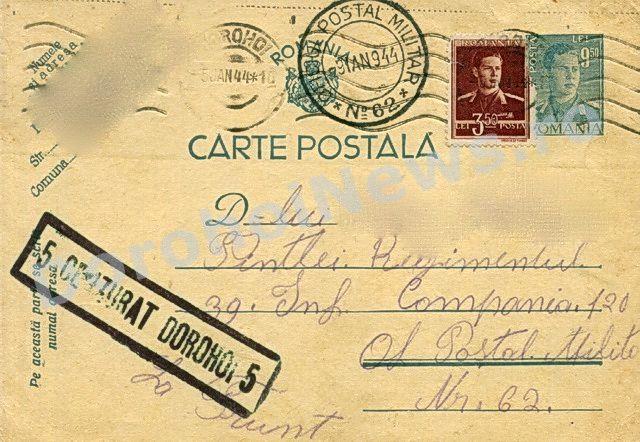 Numele
și adresa
Str.
Comuna
DOROHOI
5 IAN 44 * 18
ROMÂNIA
OFICIUL POSTAL MILITAR
* 9 IAN 944 *
* No 62 *
ROMANIA
3.50
LEI POSTA
LEI
9.50
ROMANIA
CARTE POSTALĂ
DorohoiNews.r
D-lui
Regimentul
39. Inf. Compania 120
Of Postal Milita
Nr. 62.
La Frunt
5 CENZURAT DOROHOI 5
Pe această parte se scrie
numai adresa